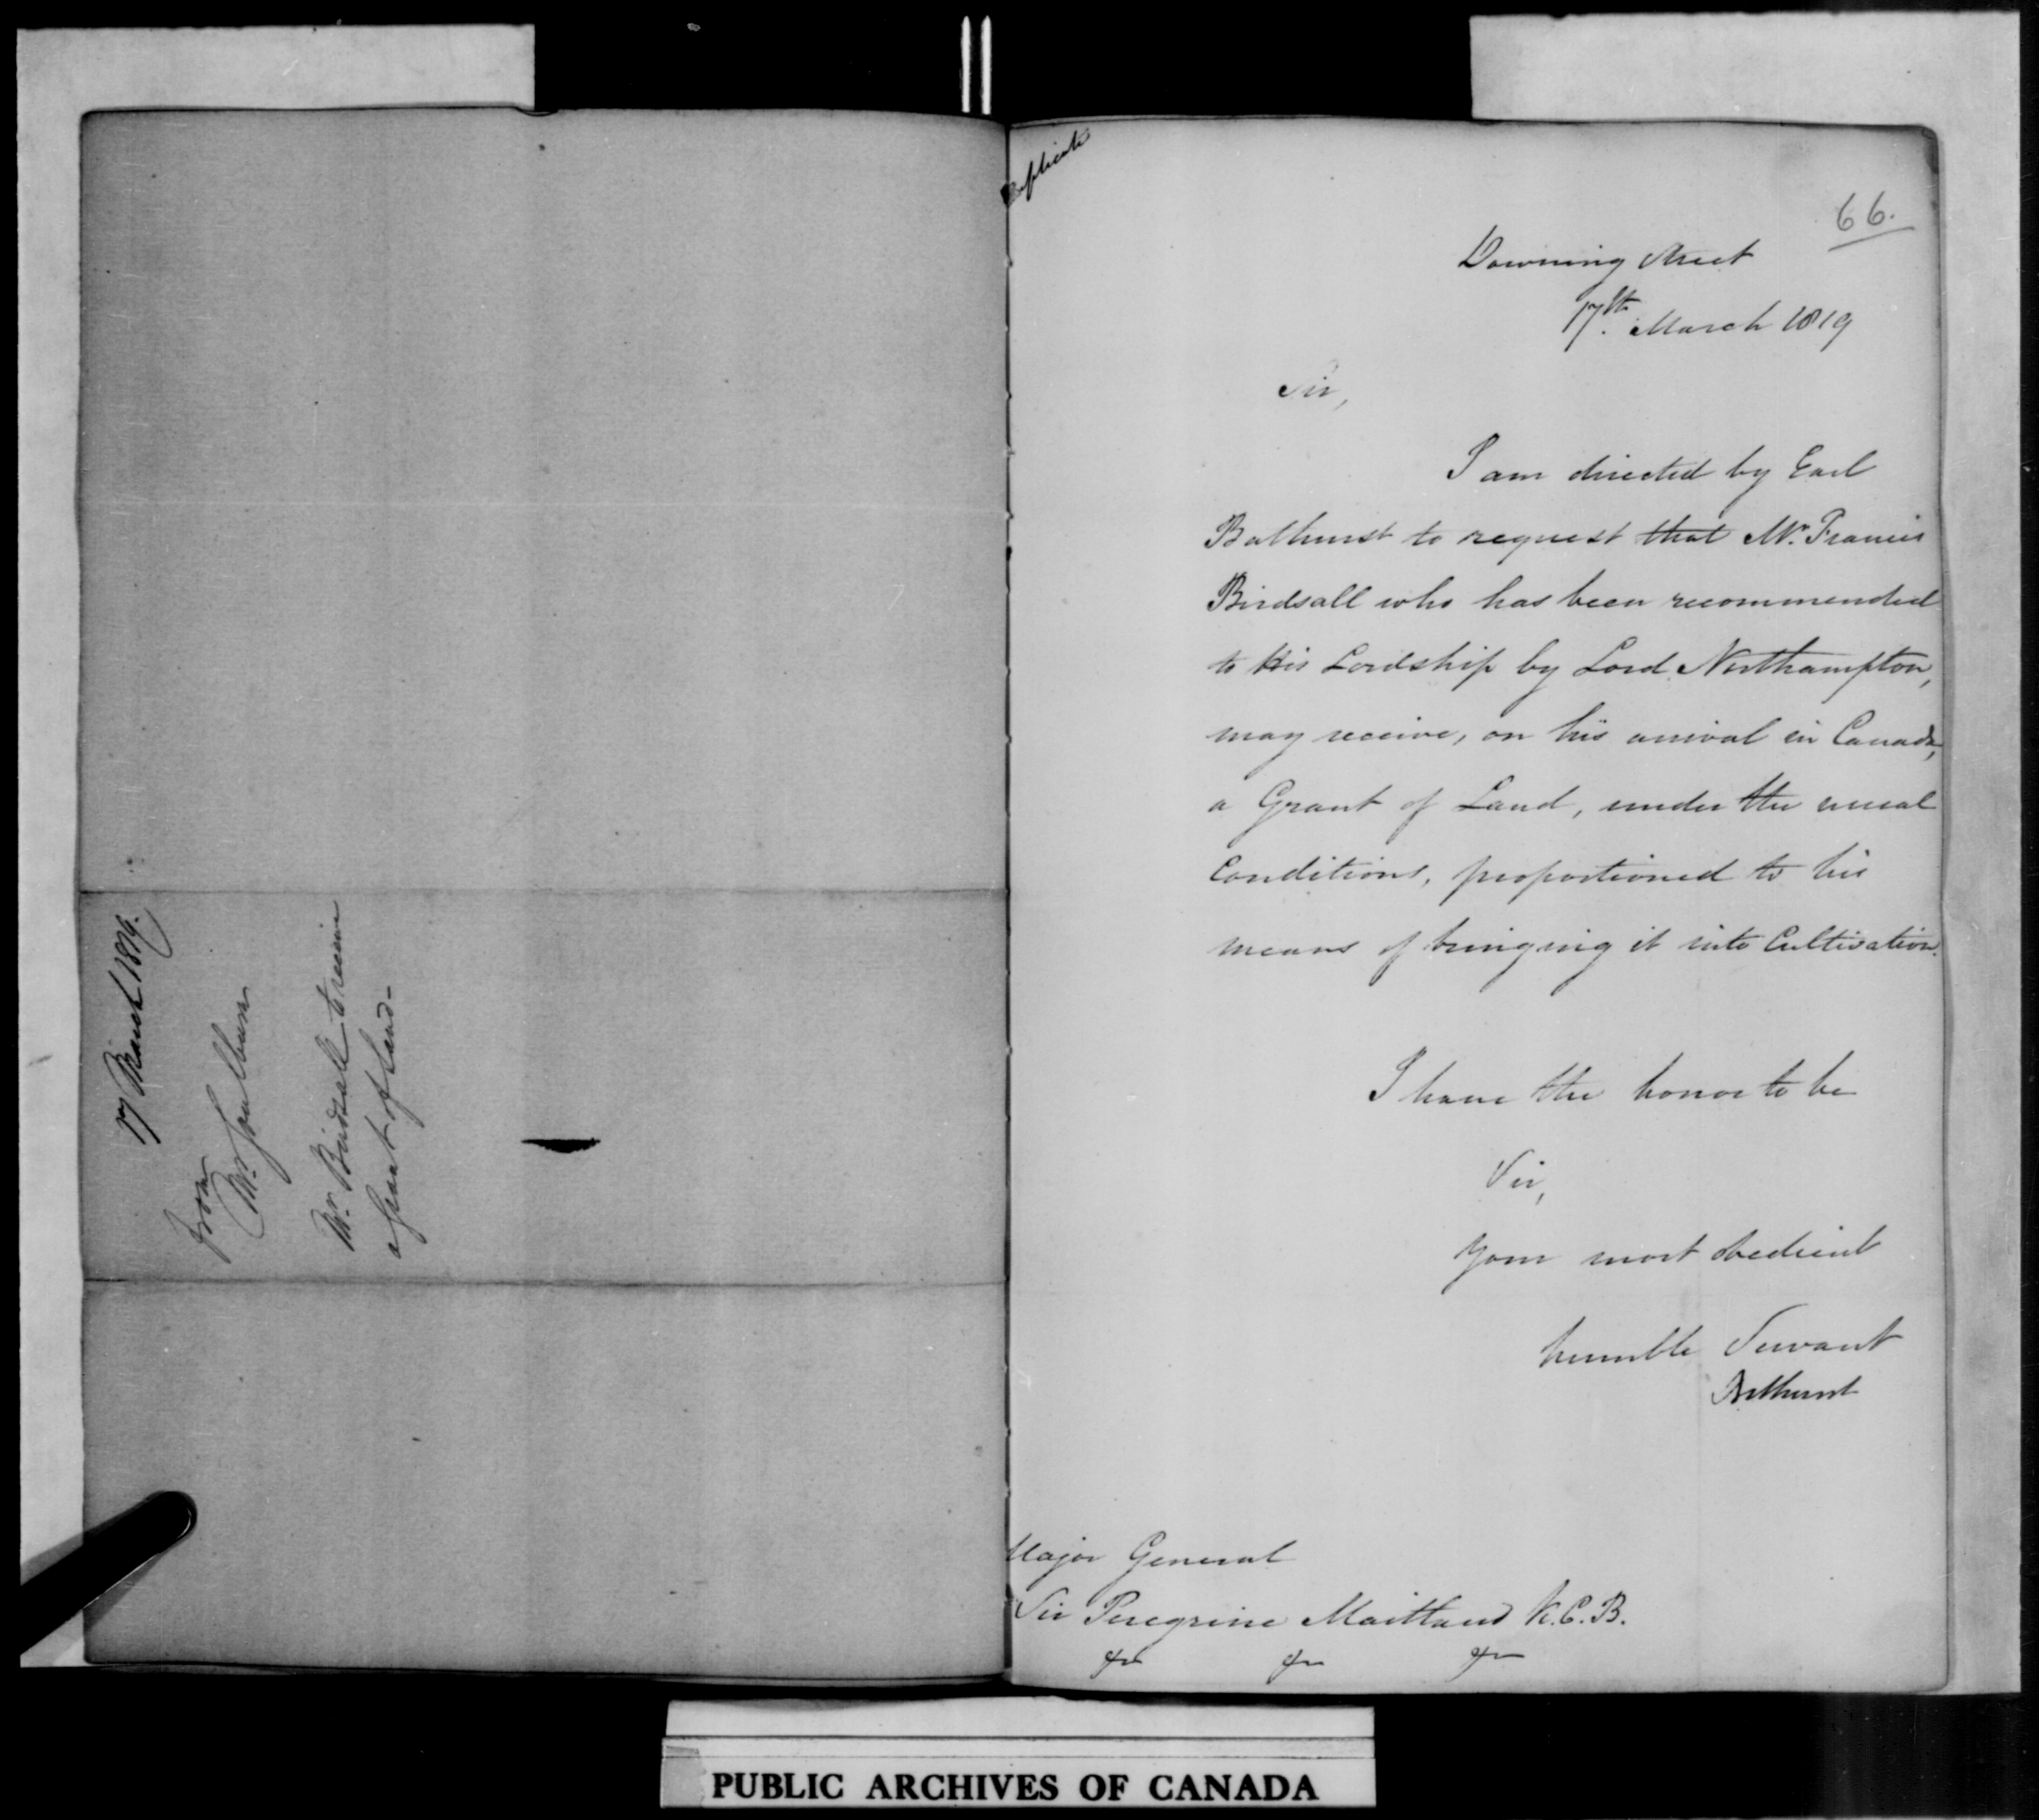 17 March 1819.
from
Mr Goulburn
Mr Birdsall to receive
a Grant of Land-
Duplicate
66.
Downing Street
17th. March 1819
Sir,
I am directed by Earl
Bathurst to request that Mr. Francis
Birdsall who has been recommended
to His Lordship by Lord Northampton,
may receive, on his arrival in Canada,
a Grant of Land, under the usual
Conditions, proportioned to his
means of bringing it into Cultivation.
I have the honor to be
Sir,
Your most obedient
humble Servant
Bathurst
Major General
Sir Peregrine Maitland K.C.B.
&c &c &c
PUBLIC ARCHIVES OF CANADA